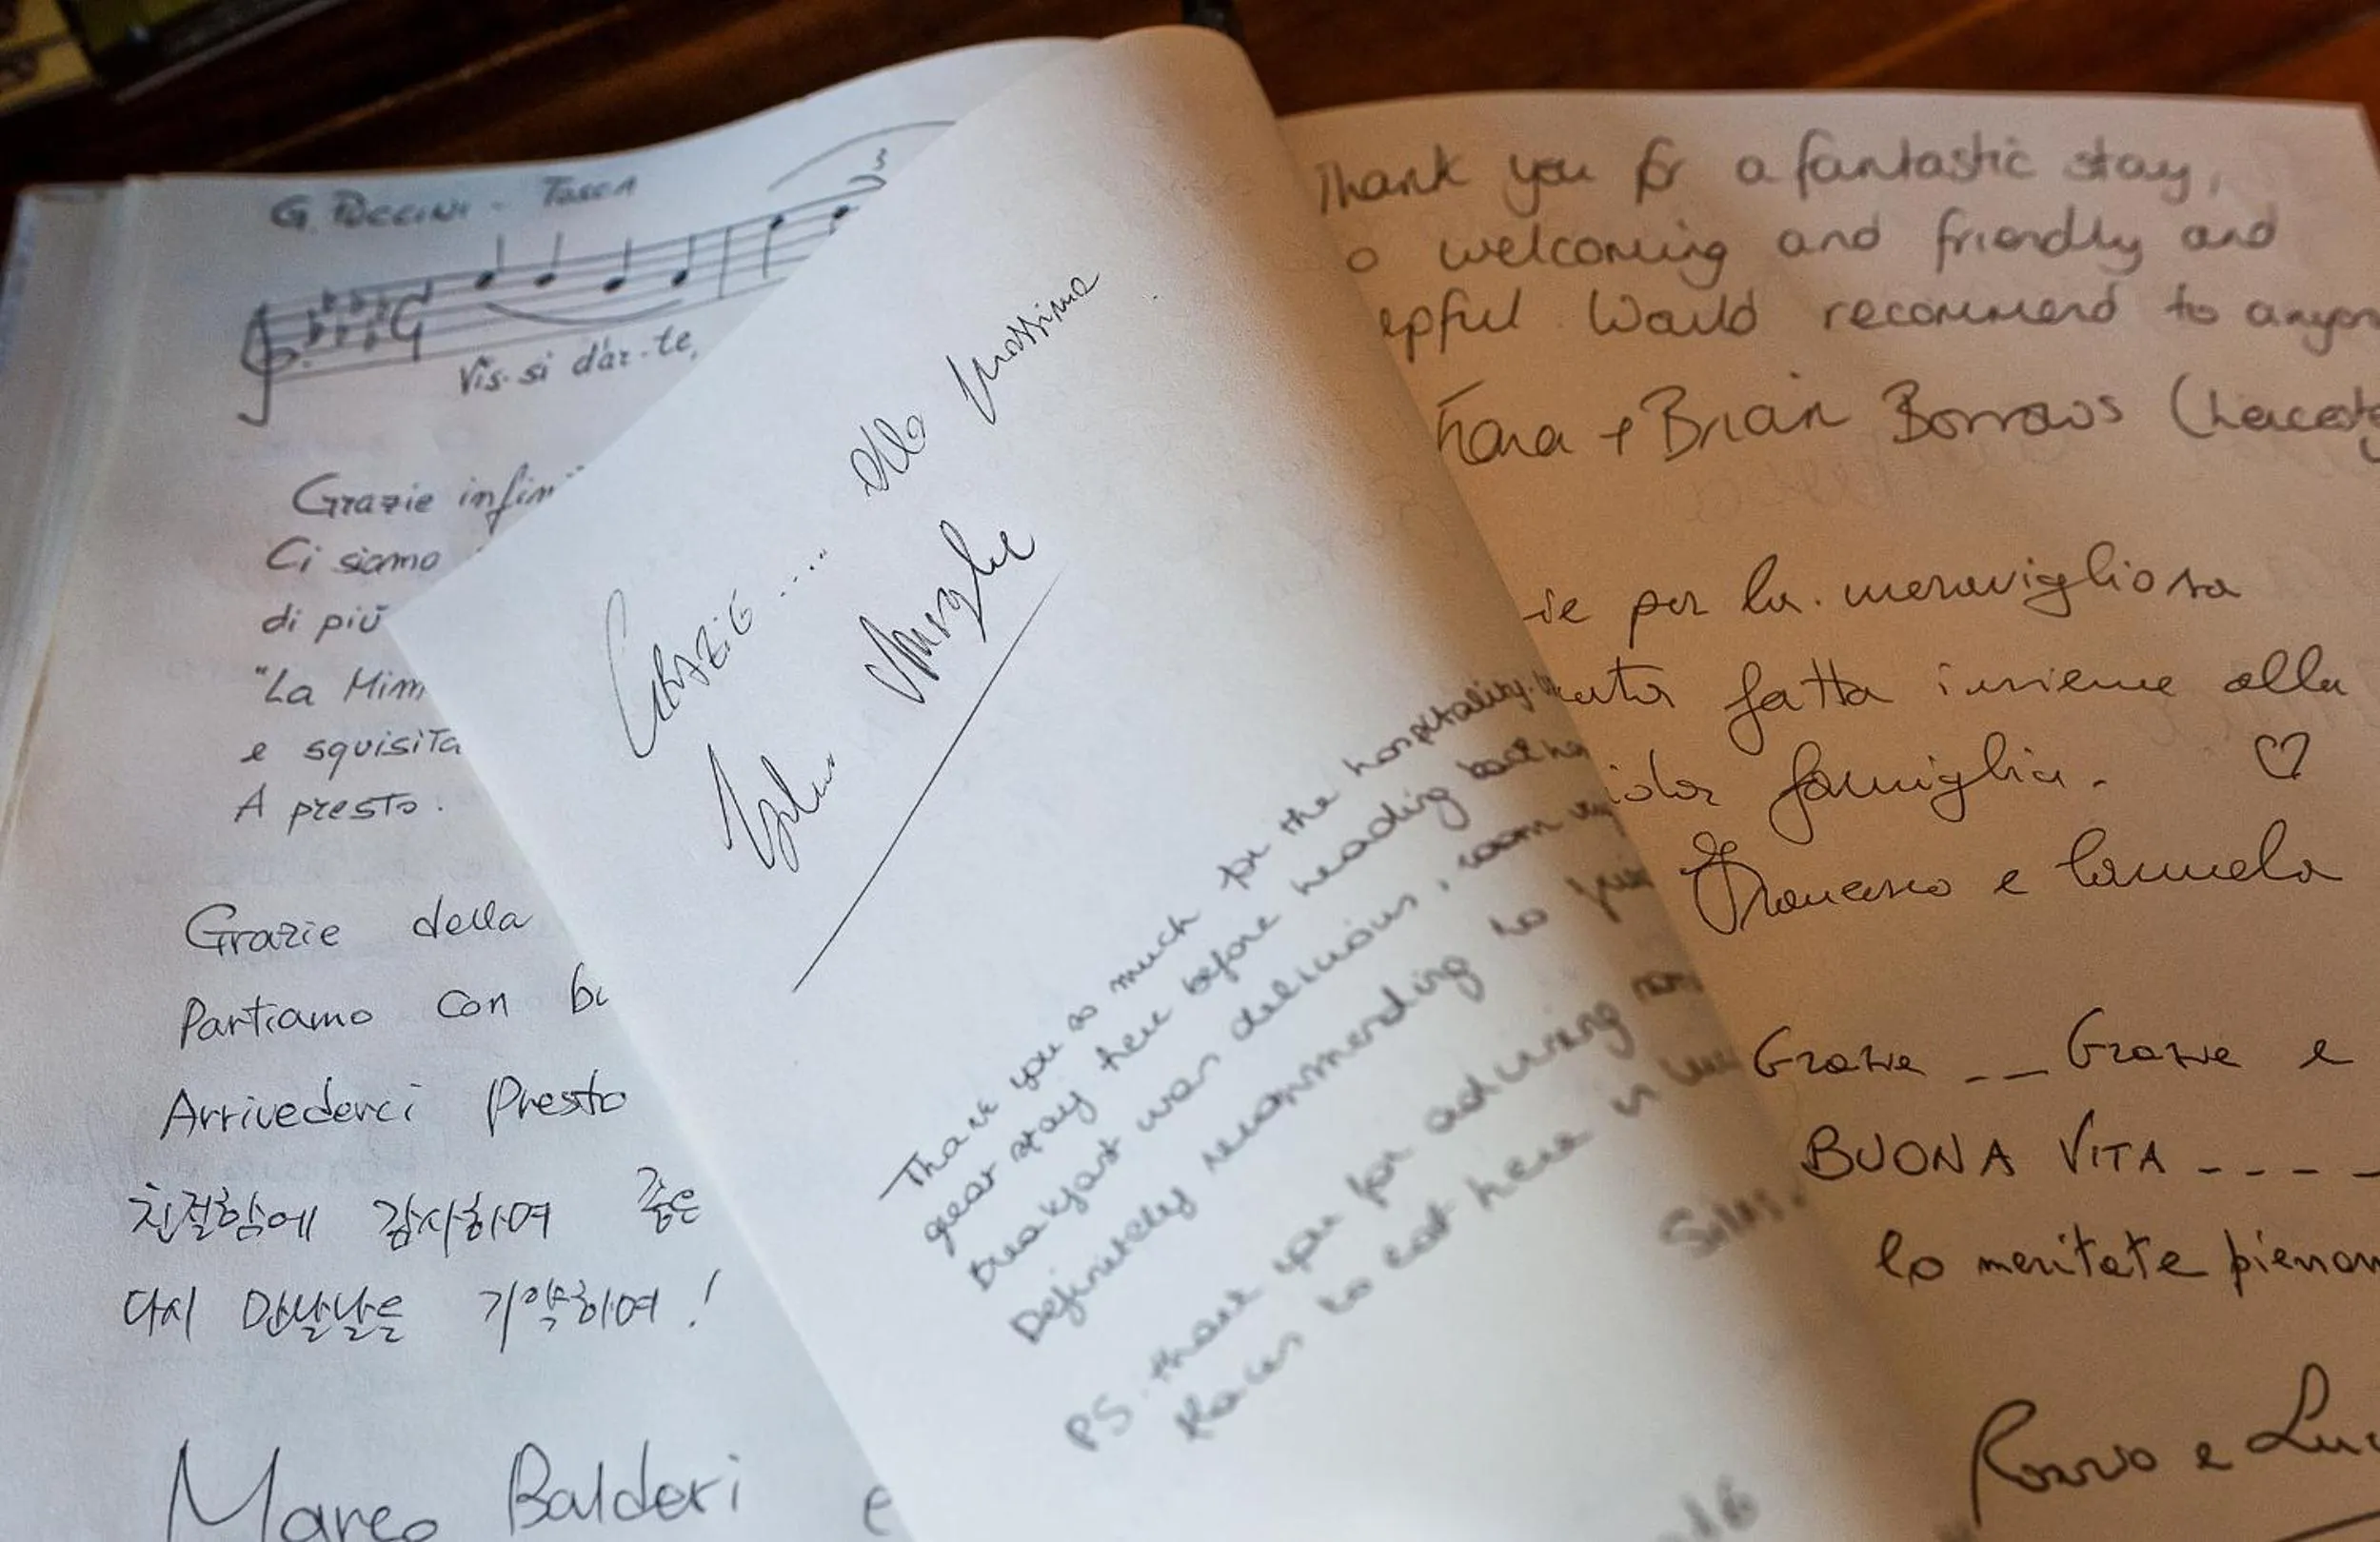 G. PUCCINI - TOSCA
3
Vis-si d'ar-te,
Grazie infini
Ci siamo
di più
"La Mim
e squisita
A presto.
Grazie della
Partiamo con bu
Arrivederci Presto
친절함에 감사하여 좋은
다시 만날날을 기약하여!
Marco Balderi e
GRAZIE.... alla prossima
Thank you so much for the hospitality.
great stay here before heading back
breakfast was delicious, room
Definitely recommending to
PS. thank you for advising
places to eat here in
Thank you for a fantastic stay,
o welcoming and friendly and
lpful. Would recommend to anyon
+ Brian Borrows (Leicest
ie per la meravigliosa
fatta insieme alla
famiglia. ♡
Francesco e
Grazie __ Grazie e
BUONA VITA ----
lo meritate pienam
e Luc